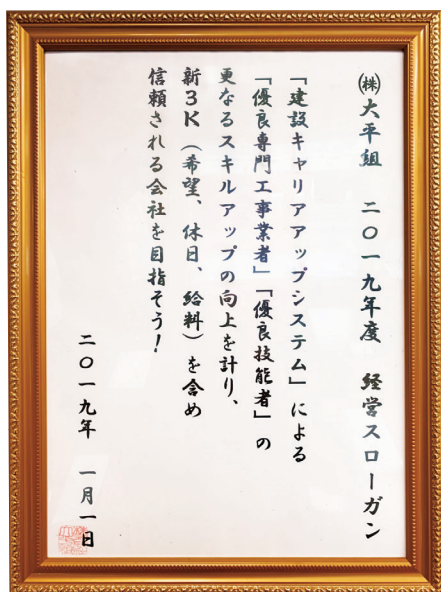 ㈱大平組　二〇一九年度　経営スローガン
「建設キャリアアップシステム」による
「優良専門工事業者」「優良技能者」の
更なるスキルアップの向上を計り、
新３Ｋ（希望、休日、給料）を含め
信頼される会社を目指そう！
二〇一九年　一月一日